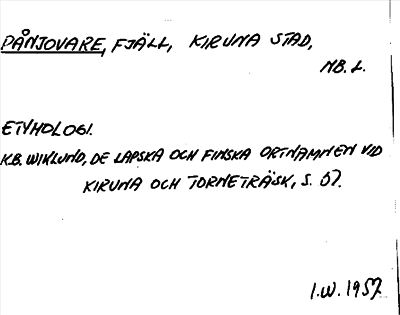 PÅNJOVARE, FJÄLL, KIRUNA STAD,
NB. L.
ETYMOLOGI.
K.B. WIKLUND, DE LAPSKA OCH FINSKA ORTNAMNEN VID
KIRUNA OCH TORNETRÄSK, S. 57.
I.W. 1957.